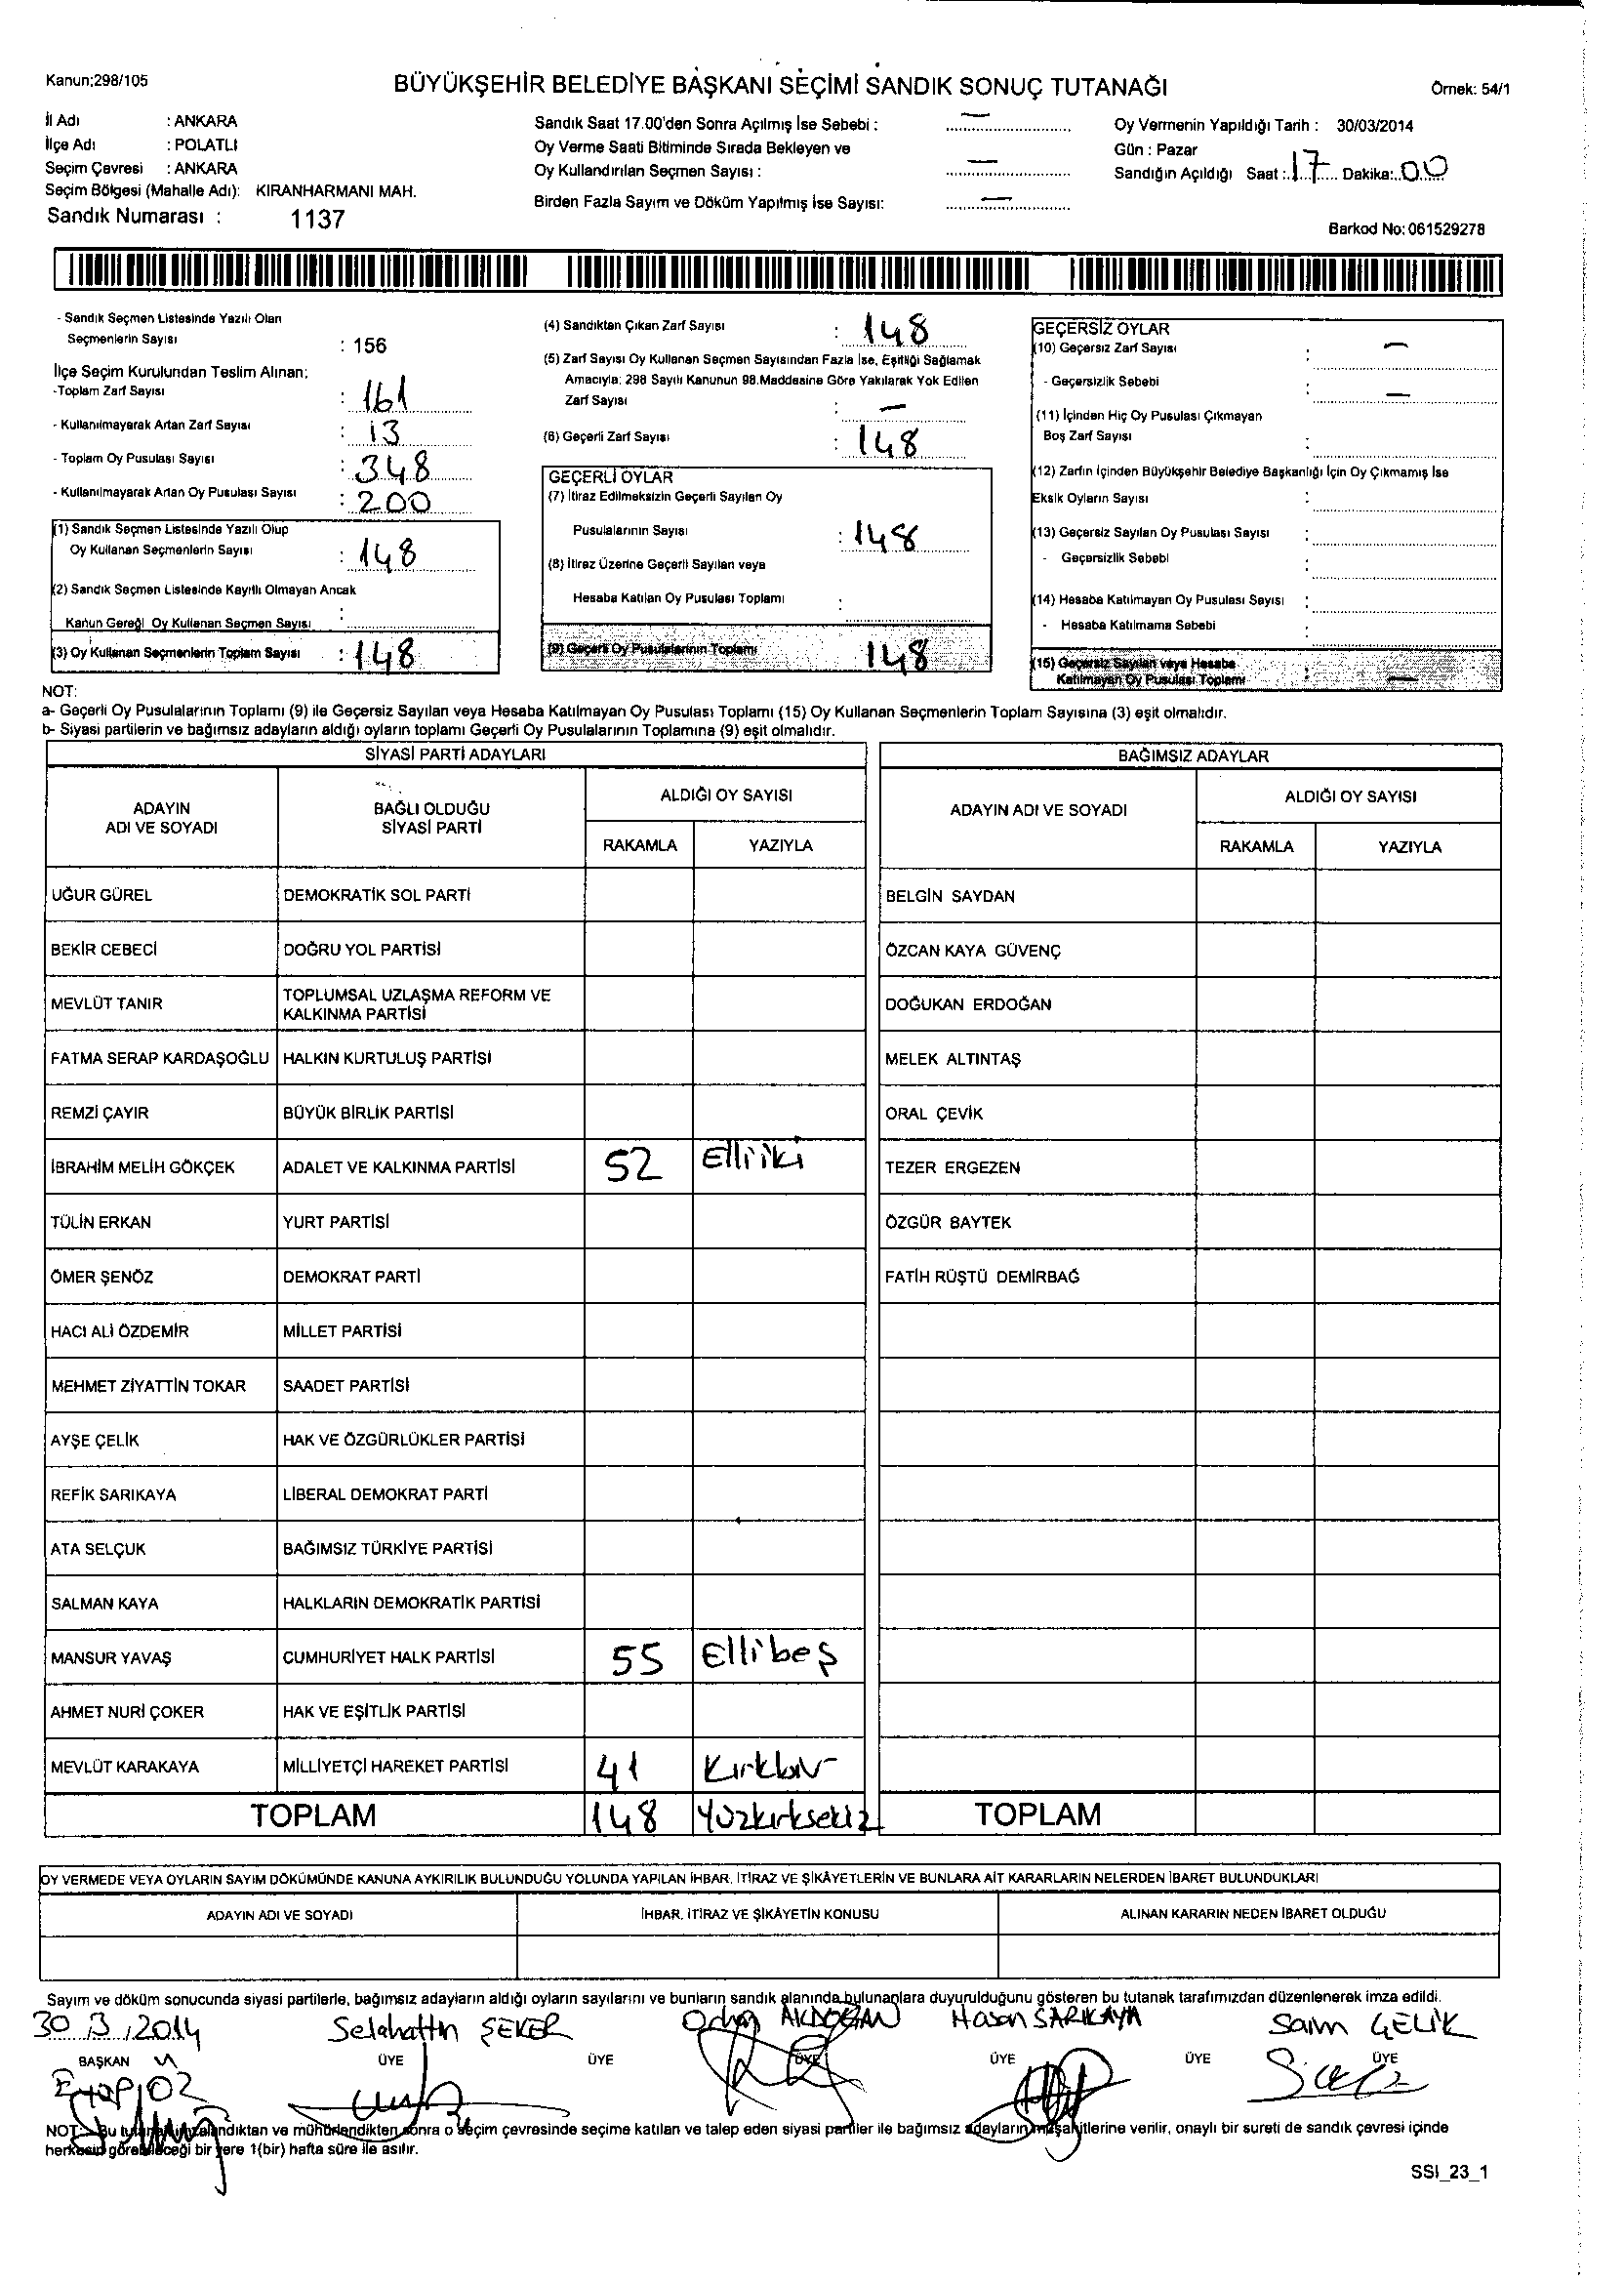 Kanun:298/105
BÜYÜKŞEHİR BELEDİYE BAŞKANI SEÇİMİ SANDIK SONUÇ TUTANAĞI
Örnek: 54/1
İl Adı : ANKARA
İlçe Adı : POLATLI
Seçim Çevresi : ANKARA
Seçim Bölgesi (Mahalle Adı): KIRANHARMANI MAH.
Sandık Numarası : 1137
Sandık Saat 17.00'den Sonra Açılmış İse Sebebi : —
Oy Verme Saati Bitiminde Sırada Bekleyen ve
Oy Kullandırılan Seçmen Sayısı : —
Birden Fazla Sayım ve Döküm Yapılmış İse Sayısı: —
Oy Vermenin Yapıldığı Tarih : 30/03/2014
Gün : Pazar
Sandığın Açıldığı Saat : 17 Dakika: 00
Barkod No: 061529278
- Sandık Seçmen Listesinde Yazılı Olan
Seçmenlerin Sayısı : 156
İlçe Seçim Kurulundan Teslim Alınan:
-Toplam Zarf Sayısı : 161
- Kullanılmayarak Artan Zarf Sayısı : 13
- Toplam Oy Pusulası Sayısı : 348
- Kullanılmayarak Artan Oy Pusulası Sayısı : 200
(1) Sandık Seçmen Listesinde Yazılı Olup
Oy Kullanan Seçmenlerin Sayısı : 148
(2) Sandık Seçmen Listesinde Kayıtlı Olmayan Ancak
Kanun Gereği Oy Kullanan Seçmen Sayısı :
(3) Oy Kullanan Seçmenlerin Toplam Sayısı : 148
(4) Sandıktan Çıkan Zarf Sayısı : 148
(5) Zarf Sayısı Oy Kullanan Seçmen Sayısından Fazla İse, Eşitliği Sağlamak
Amacıyla; 298 Sayılı Kanunun 98.Maddesine Göre Yakılarak Yok Edilen
Zarf Sayısı : —
(6) Geçerli Zarf Sayısı : 148
GEÇERLİ OYLAR
(7) İtiraz Edilmeksizin Geçerli Sayılan Oy
Pusulalarının Sayısı : 148
(8) İtiraz Üzerine Geçerli Sayılan veya
Hesaba Katılan Oy Pusulası Toplamı :
(9) Geçerli Oy Pusulalarının Toplamı 148
GEÇERSİZ OYLAR
(10) Geçersiz Zarf Sayısı : —
- Geçersizlik Sebebi : —
(11) İçinden Hiç Oy Pusulası Çıkmayan
Boş Zarf Sayısı :
(12) Zarfın İçinden Büyükşehir Belediye Başkanlığı İçin Oy Çıkmamış İse
Eksik Oyların Sayısı :
(13) Geçersiz Sayılan Oy Pusulası Sayısı :
- Geçersizlik Sebebi :
(14) Hesaba Katılmayan Oy Pusulası Sayısı :
- Hesaba Katılmama Sebebi :
(15) Geçersiz Sayılan veya Hesaba
Katılmayan Oy Pusulası Toplamı : —
NOT:
a- Geçerli Oy Pusulalarının Toplamı (9) ile Geçersiz Sayılan veya Hesaba Katılmayan Oy Pusulası Toplamı (15) Oy Kullanan Seçmenlerin Toplam Sayısına (3) eşit olmalıdır.
b- Siyasi partilerin ve bağımsız adayların aldığı oyların toplamı Geçerli Oy Pusulalarının Toplamına (9) eşit olmalıdır.
SİYASİ PARTİ ADAYLARI
ADAYIN ADI VE SOYADI
BAĞLI OLDUĞU SİYASİ PARTİ
ALDIĞI OY SAYISI
RAKAMLA YAZIYLA
UĞUR GÜREL DEMOKRATİK SOL PARTİ
BEKİR CEBECİ DOĞRU YOL PARTİSİ
MEVLÜT TANIR TOPLUMSAL UZLAŞMA REFORM VE KALKINMA PARTİSİ
FATMA SERAP KARDAŞOĞLU HALKIN KURTULUŞ PARTİSİ
REMZİ ÇAYIR BÜYÜK BİRLİK PARTİSİ
İBRAHİM MELİH GÖKÇEK ADALET VE KALKINMA PARTİSİ 52 Elliiki
TÜLİN ERKAN YURT PARTİSİ
ÖMER ŞENÖZ DEMOKRAT PARTİ
HACI ALİ ÖZDEMİR MİLLET PARTİSİ
MEHMET ZİYATTİN TOKAR SAADET PARTİSİ
AYŞE ÇELİK HAK VE ÖZGÜRLÜKLER PARTİSİ
REFİK SARIKAYA LİBERAL DEMOKRAT PARTİ
ATA SELÇUK BAĞIMSIZ TÜRKİYE PARTİSİ
SALMAN KAYA HALKLARIN DEMOKRATİK PARTİSİ
MANSUR YAVAŞ CUMHURİYET HALK PARTİSİ 55 Ellibeş
AHMET NURİ ÇOKER HAK VE EŞİTLİK PARTİSİ
MEVLÜT KARAKAYA MİLLİYETÇİ HAREKET PARTİSİ 41 Kırkbir
TOPLAM 148 Yüzkırksekiz
BAĞIMSIZ ADAYLAR
ADAYIN ADI VE SOYADI
ALDIĞI OY SAYISI
RAKAMLA YAZIYLA
BELGİN SAYDAN
ÖZCAN KAYA GÜVENÇ
DOĞUKAN ERDOĞAN
MELEK ALTINTAŞ
ORAL ÇEVİK
TEZER ERGEZEN
ÖZGÜR BAYTEK
FATİH RÜŞTÜ DEMİRBAĞ
TOPLAM
OY VERMEDE VEYA OYLARIN SAYIM DÖKÜMÜNDE KANUNA AYKIRILIK BULUNDUĞU YOLUNDA YAPILAN İHBAR, İTİRAZ VE ŞİKÂYETLERİN VE BUNLARA AİT KARARLARIN NELERDEN İBARET BULUNDUKLARI
ADAYIN ADI VE SOYADI İHBAR, İTİRAZ VE ŞİKÂYETİN KONUSU ALINAN KARARIN NEDEN İBARET OLDUĞU
Sayım ve döküm sonucunda siyasi partilerle, bağımsız adayların aldığı oyların sayılarını ve bunların sandık alanında bulunanlara duyurulduğunu gösteren bu tutanak tarafımızdan düzenlenerek imza edildi.
30.3.2014 Selahattin ŞEKER Orhan AKDOĞAN Hasan SARIKAYA Saim ÇELİK
BAŞKAN ÜYE ÜYE ÜYE ÜYE ÜYE ÜYE
NOT: Bu tutanak imzalandıktan ve mühürlendikten sonra o seçim çevresinde seçime katılan ve talep eden siyasi partiler ile bağımsız adayların müşahitlerine verilir, onaylı bir sureti de sandık çevresi içinde
herkesin görebileceği bir yere 1(bir) hafta süre ile asılır.
SSI_23_1